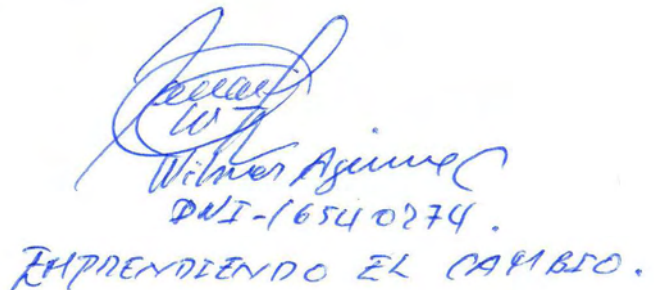 Wilmer Aguirre C
DNI-16540274.
EMPRENDIENDO EL CAMBIO.